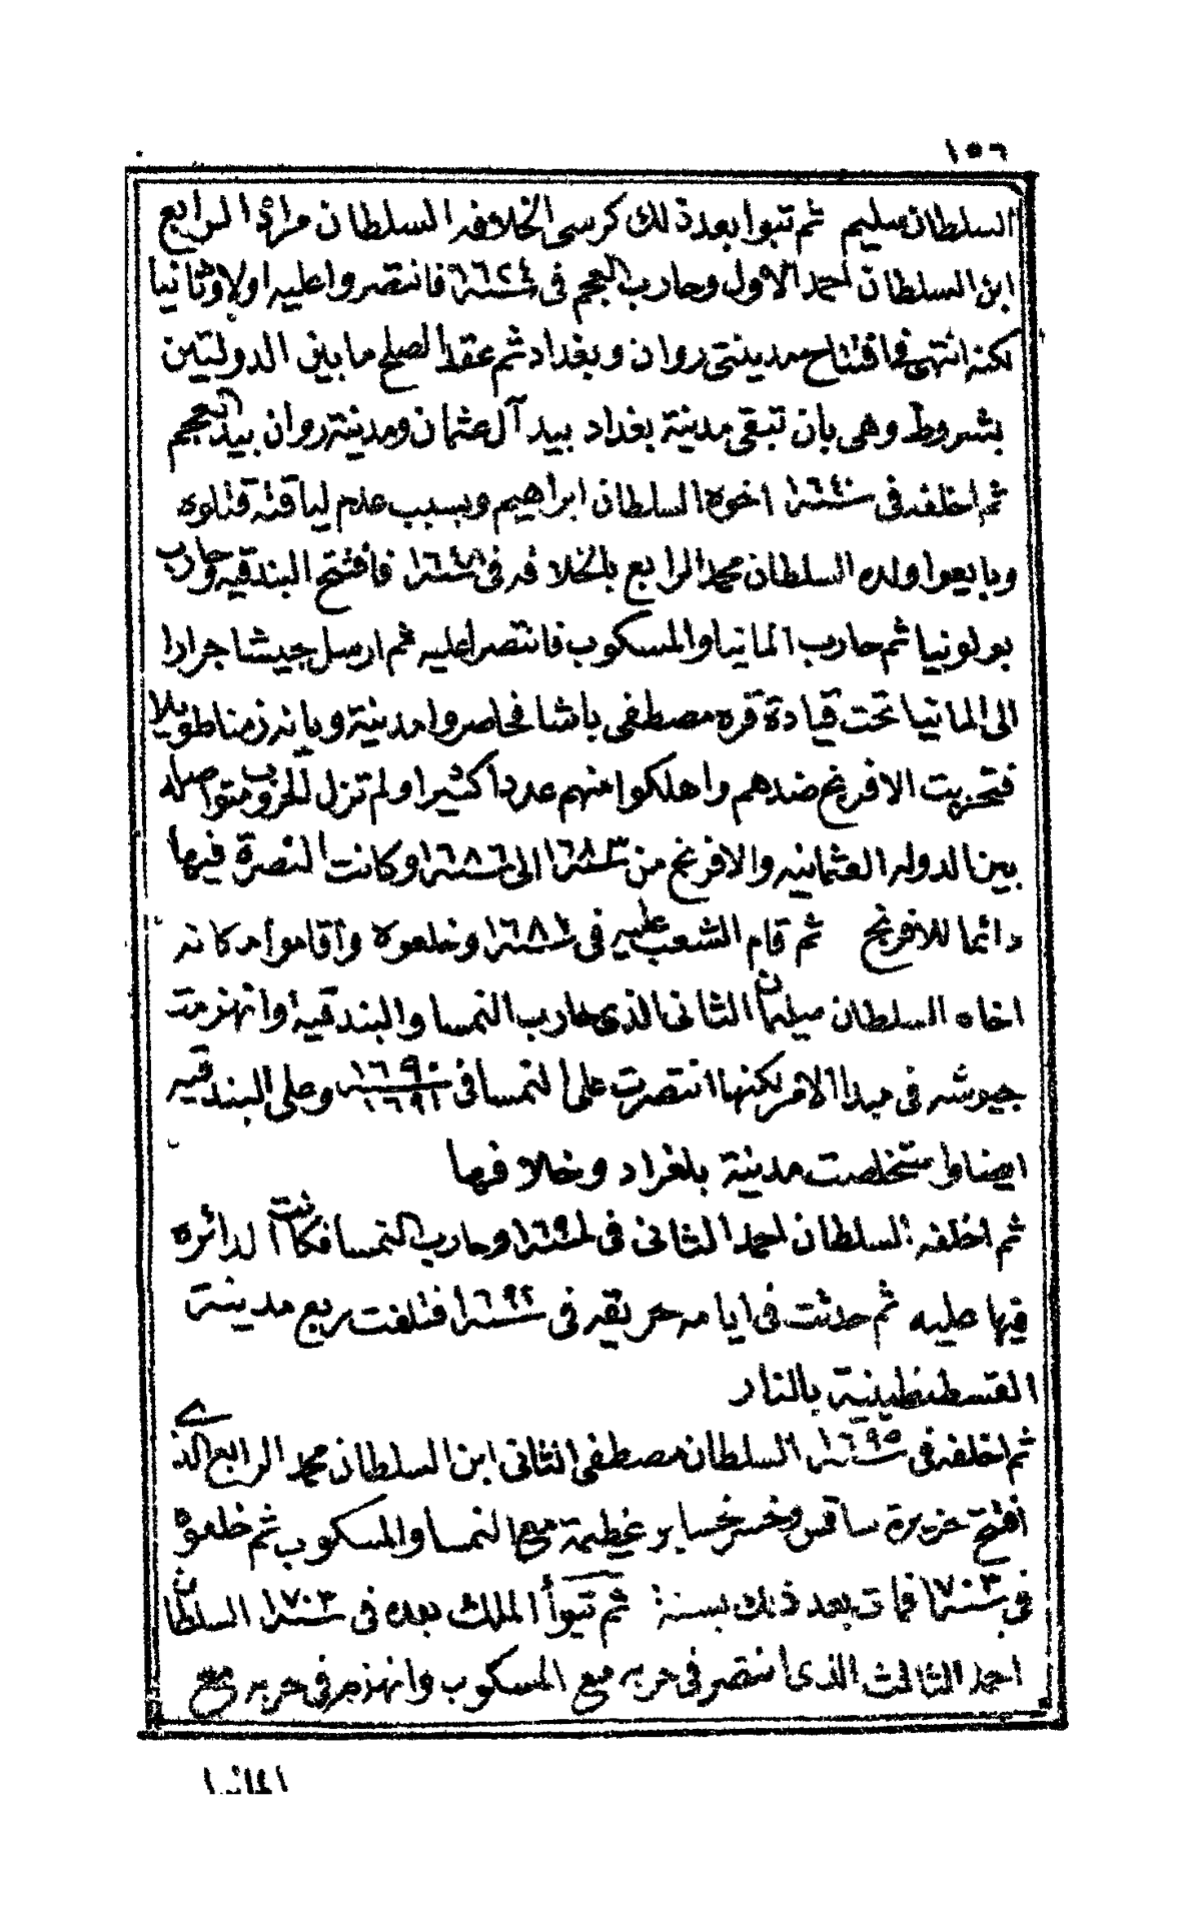 ١٥٦
السلطان سليم ثم تبوا بعد ذلك كرسى الخلافه السلطان مراد الرابع
ابن السلطان احمد الاول وحارب العجم فى سنة ١٦٢٤ فانتصروا عليه اولا وثانيا
لكنه انتهى فافتتاح مدينتى روان وبغداد ثم عقد الصلح ما بين الدولتين
بشروط وهى بان تبقى مدينة بغداد بيد آل عثمان ومدينة روان بيد العجم
ثم اخلفه فى سنة ١٦٤٠ اخوه السلطان ابراهيم وبسبب عدم لياقته قتلوه
وبايعوا ولده السلطان محمد الرابع بالخلافه فى سنة ١٦٤٨ فأفتتح البندقيه وحارب
بولونيا ثم حارب المانيا والمسكوب فانتصرا عليه ثم ارسل جيشا جرارا
الى المانيا تحت قيادة قره مصطفى باشا فحاصروا مدينة ويانه زمنا طويلا
فتحزبت الافرنج ضدهم واهلكوا منهم عددا كثيرا ولم تزل الحروب متواصله
بين الدوله العثمانيه والافرنج من سنة ١٦٨٣ الى سنة ١٦٨٦ وكانت النصرة فيها
دائما للافرنج ثم قام الشعب عليه فى سنة ١٦٨٦ وخلعوه وأقاموا مكانه
اخاه السلطان سليمان الثانى الذى حارب النمسا والبندقية وانهزمت
جيوشه فى مبدا الامر لكنها انتصرت على النمسا فى سنة ١٦٩٠ ١٦٩١ وعلى البندقيه
ايضا واستخلصت مدينة بلغراد وخلافها
ثم اخلفه السلطان احمد الثانى فى سنة ١٦٩١ وحارب النمسا فكانت الدائره
فيها عليه ثم حدثت فى ايامه حريقه فى سنة ١٦٩٢ فتلفت ربع مدينة
القسطنطينية بالنار
ثم اخلفه فى سنة ١٦٩٥ السلطان مصطفى الثانى ابن السلطان محمد الرابع الذى
أفتتح جزيرة ساقس وخسر خساير عظيمة مع النمسا والمسكوب ثم خلعوه
فى سنة ١٧٠٣ فمات بعد ذلك بسنة ثم تبوأ الملك بعده فى سنة ١٧٠٣ السلطان
احمد الثالث الذى انتصر فى حربه مع المسكوب وانهزم فى حربه مع
المانيا